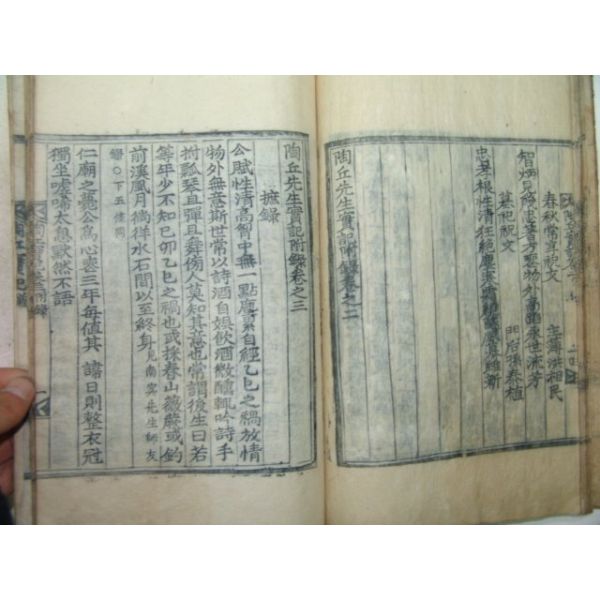 春秋常享祝文
智炳見幾忠著
物外高蹈永世流芳
墓祀祝文
忠孝根性清狂絶塵
陶丘先生實記附錄卷之二
陶丘先生實記附錄卷之三
摭錄
公賦性清高智中無一點塵累自經乙巳之禍放情
物外無意斯世常以詩酒自娛飲酒微醺輒吟詩手
拊瓢琴且彈且舞傍人莫知其意也常謂後生曰若
等年少不知己卯乙巳之禍也或採春山薇蕨或釣
前溪風月徜徉水石間以至終身見南冥先生師友
錄〇下五條同
仁廟之薨公爲心喪三年每値其諱日則整衣冠
獨坐噓唏太息默然不語